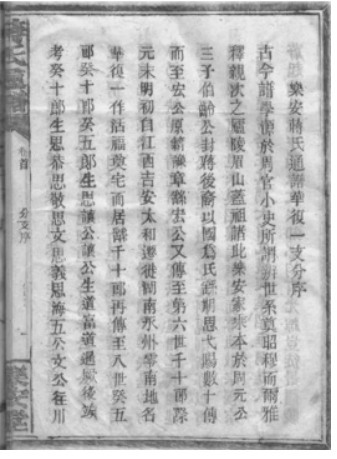 樂安蔣氏通譜華復一支分序
古今譜學傳於周官小史所謂辨世系奠昭穆而爾雅
釋親次之廬陵眉山蓋祖諸此樂安家乘本於周元公
三子伯齡公封蔣後裔以國為氏無期思弋陽數十傳
而至宏公原籍豫章鶴宏公又傳至第六世千十郎際
元末明初自江西吉安太和遷徙湖南永州零南地名
華復一作話福奠宅而居諱千十郎再傳至八世癸五
郎癸十郎癸五郎生思讓公讓公生道富道通厥後族
考癸十郎生思恭思敬思文思義思海五公文公在川
蔣氏通譜
卷首
分支序
樂安堂